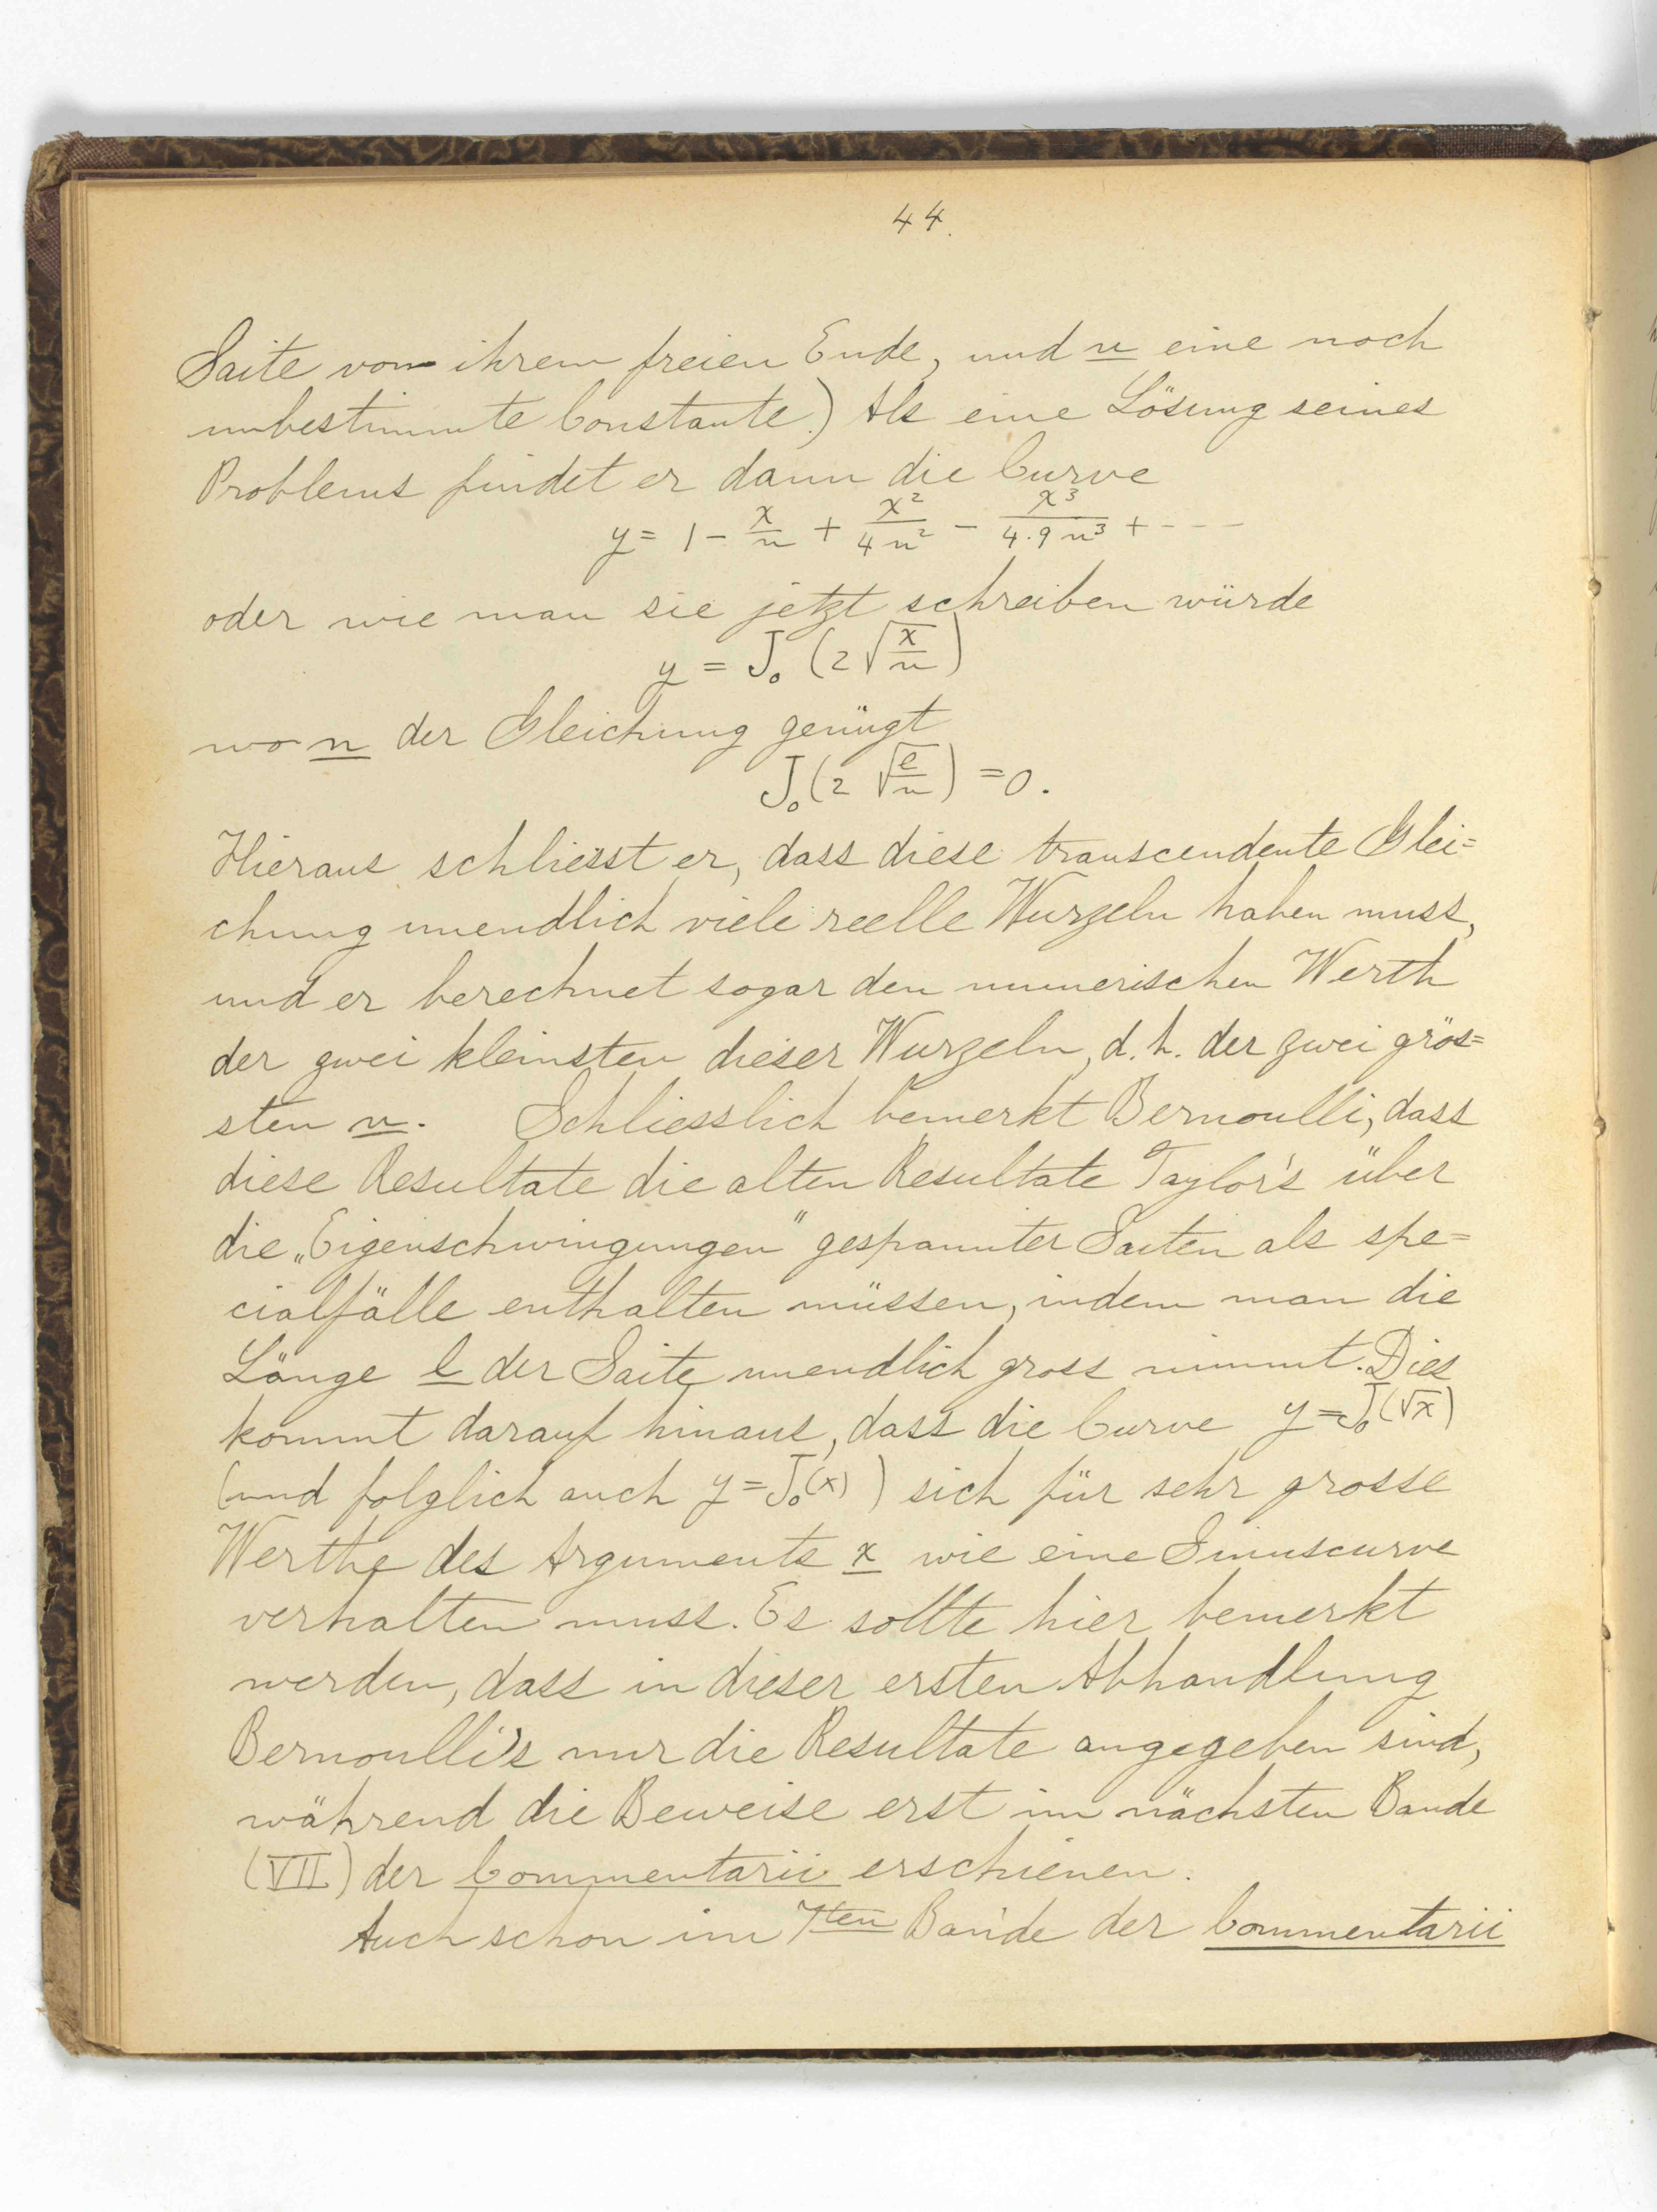 44.
Saite von ihrem freien Ende, und n eine noch
unbestimmte Constante.) Als eine Lösung seines
Problems findet er dann die Curve
y = 1 - x/n + x²/4n² - x³/4·9n³ + - - -
oder wie man sie jetzt schreiben würde
y = J₀ (2√x/n)
wo n der Gleichung genügt
J₀(2 √l/n) = 0.
Hieraus schliesst er, dass diese transcendente Glei=
chung unendlich viele reelle Wurzeln haben muss,
und er berechnet sogar den numerischen Werth
der zwei kleinsten dieser Wurzeln, d. h. der zwei grös=
sten n. Schliesslich bemerkt Bernoulli, dass
diese Resultate die alten Resultate Taylor's über
die „Eigenschwingungen" gespannter Saiten als spe=
cialfälle enthalten müssen, indem man die
Länge l der Saite unendlich gross nimmt. Dies
kommt darauf hinaus, dass die Curve y=J₀(√x)
(und folglich auch y=J₀(x)) sich für sehr grosse
Werthe des Arguments x wie eine Sinuscurve
verhalten muss. Es sollte hier bemerkt
werden, dass in dieser ersten Abhandlung
Bernoulli's nur die Resultate angegeben sind,
während die Beweise erst im nächsten Bande
(VII) der Commentarii erschienen.
Auch schon im 7ten Bande der Commentarii